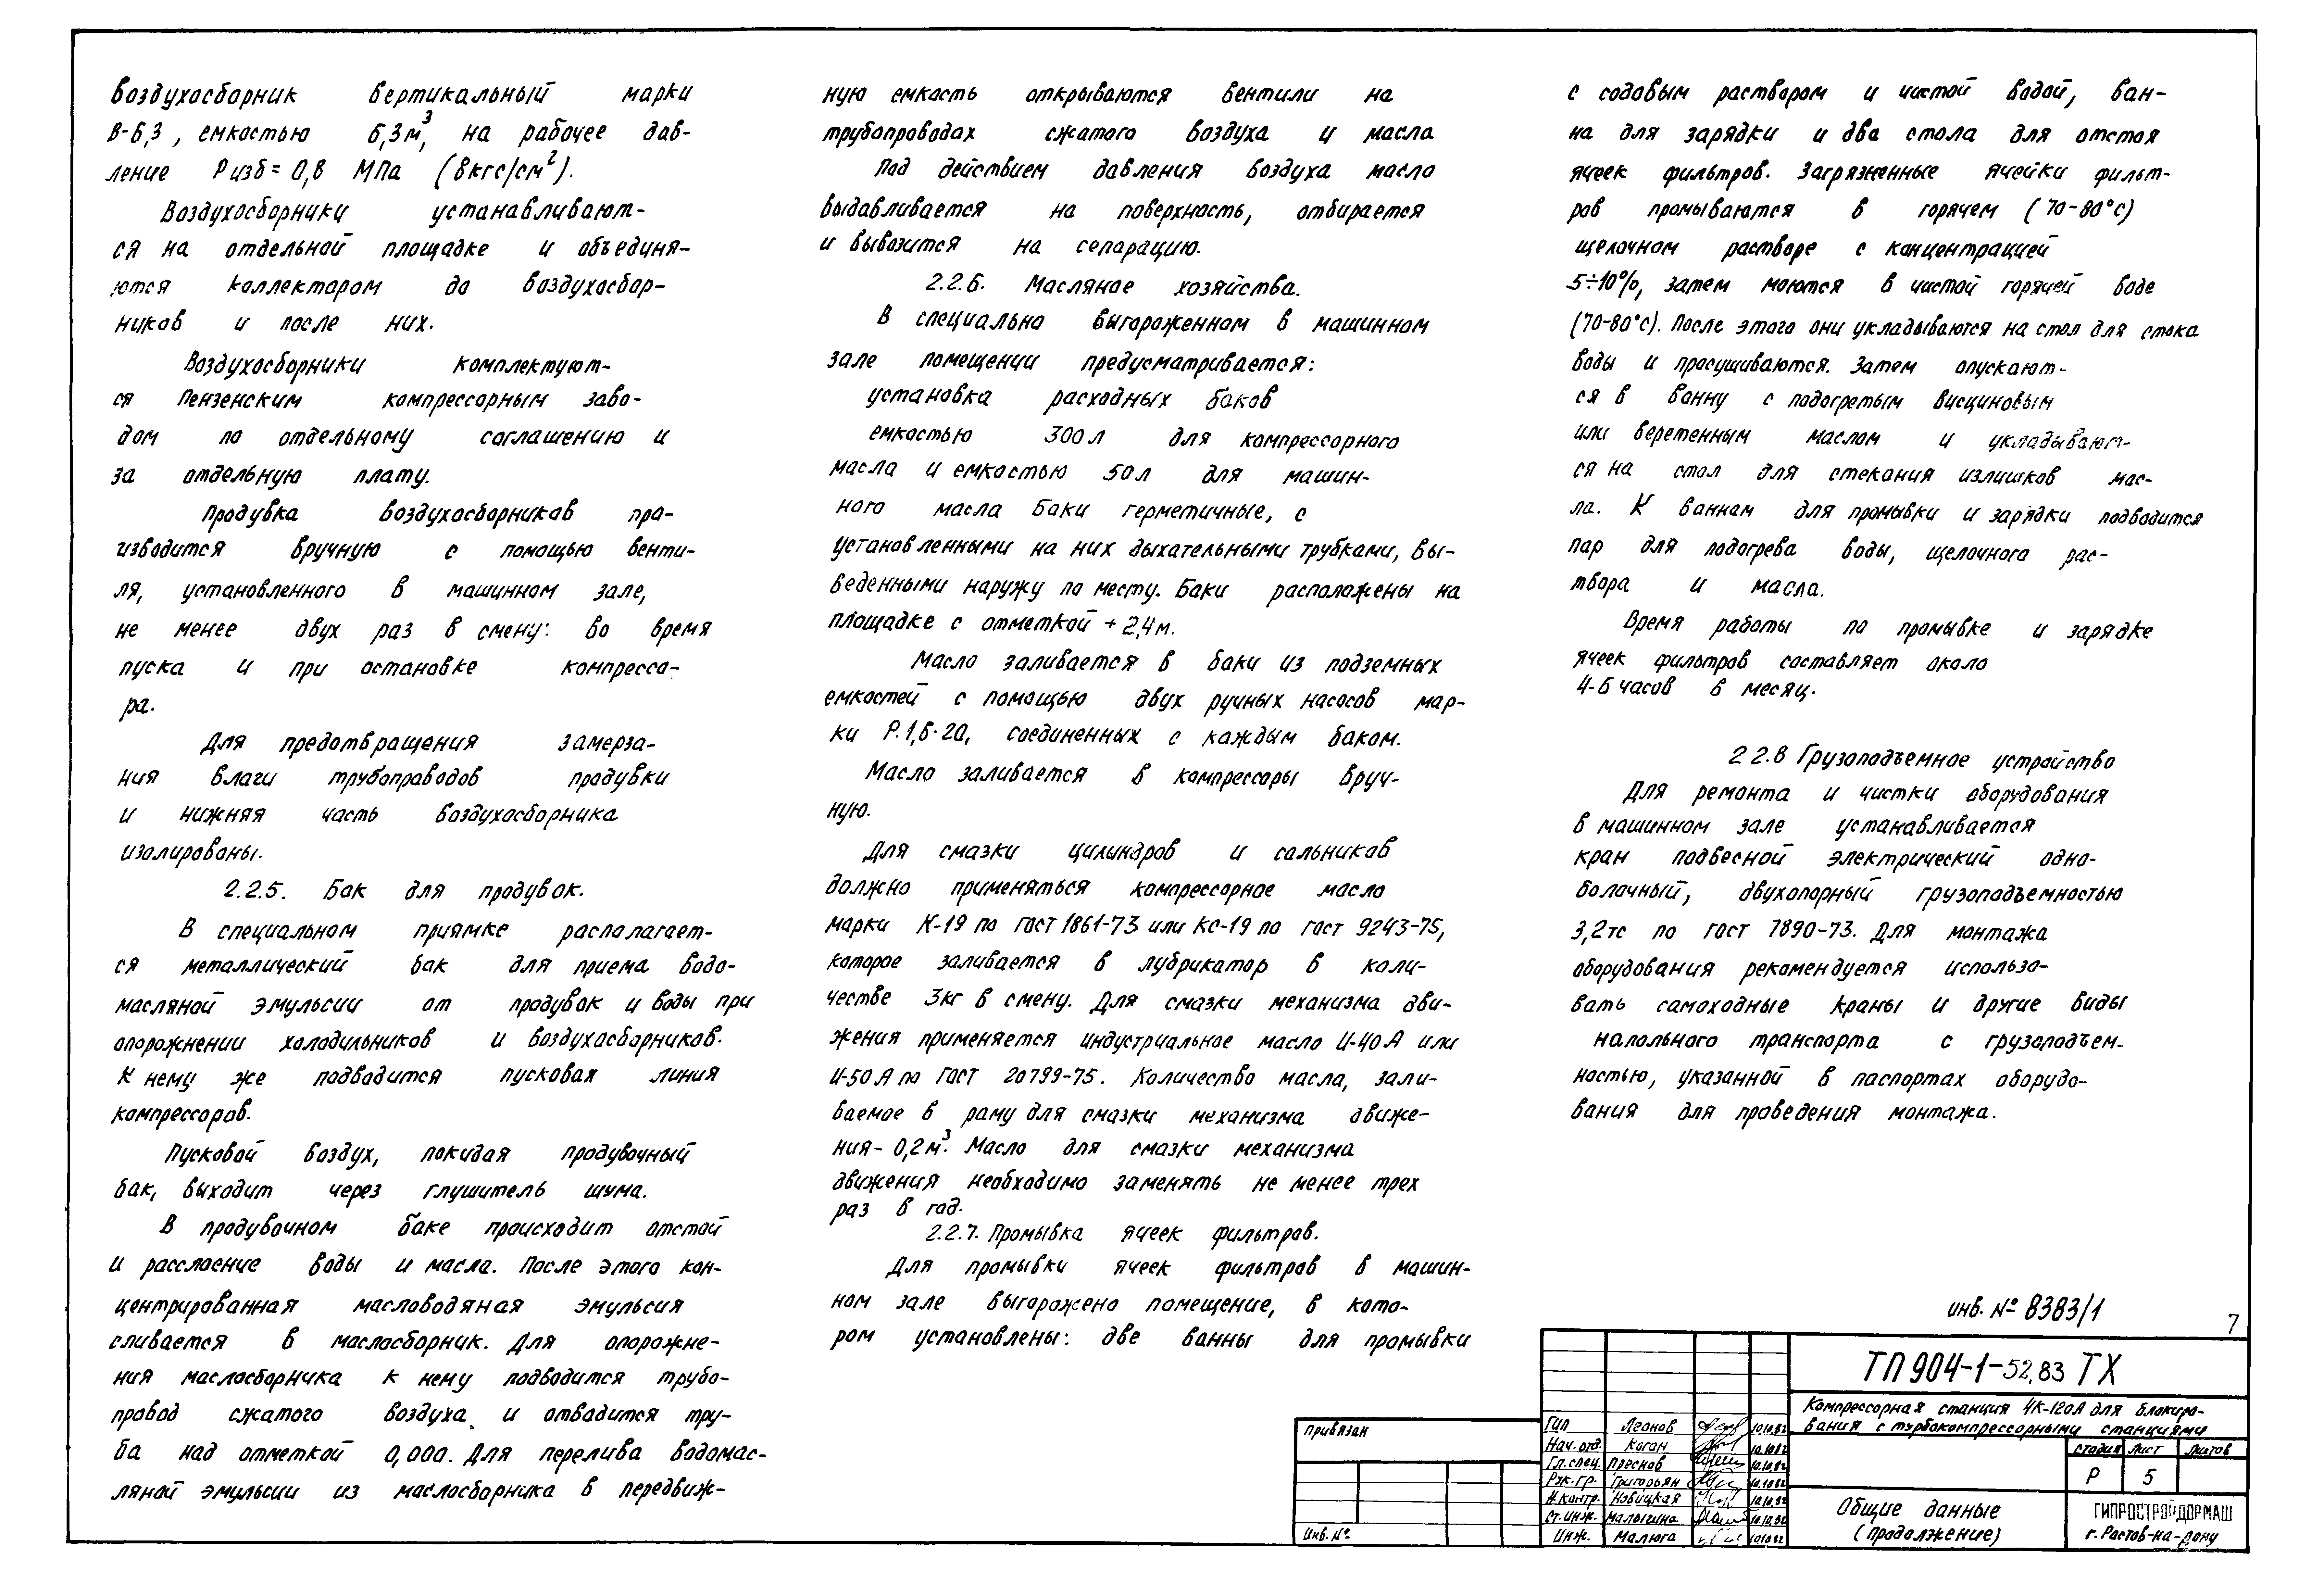 воздухосборник вертикальный марки
В-6,3, емкостью 6,3 м³, на рабочее дав-
ление Ризб = 0,8 МПа (8 кгс/см²).
Воздухосборники устанавливают-
ся на отдельной площадке и объединя-
ются коллектором до воздухосбор-
ников и после них.
Воздухосборники комплектуют-
ся Пензенским компрессорным заво-
дом по отдельному соглашению и
за отдельную плату.
Продувка воздухосборников про-
изводится вручную с помощью венти-
ля, установленного в машинном зале,
не менее двух раз в смену: во время
пуска и при остановке компрессо-
ра.
Для предотвращения замерза-
ния влаги трубопроводов продувки
и нижняя часть воздухосборника
изолированы.
2.2.5. Бак для продувок.
В специальном приямке располагает-
ся металлический бак для приема водо-
масляной эмульсии от продувок и воды при
опорожнении холодильников и воздухосборников.
К нему же подводится пусковая линия
компрессоров.
Пусковой воздух, покидая продувочный
бак, выходит через глушитель шума.
В продувочном баке происходит отстой
и расслоение воды и масла. После этого кон-
центрированная масловодяная эмульсия
сливается в маслосборник. Для опорожне-
ния маслосборника к нему подводится трубо-
провод сжатого воздуха и отводится тру-
ба над отметкой 0,000. Для перелива водомас-
ляной эмульсии из маслосборника в передвиж-
ную емкость открываются вентили на
трубопроводах сжатого воздуха и масла
Под действием давления воздуха масло
выдавливается на поверхность, отбирается
и вывозится на сепарацию.
2.2.6. Масляное хозяйства.
В специально выгороженном в машинном
зале помещении предусматривается:
установка расходных баков
емкостью 300 л для компрессорного
масла и емкостью 50 л для машин-
ного масла Баки герметичные, с
установленными на них дыхательными трубками, вы-
веденными наружу по месту. Баки расположены на
площадке с отметкой + 2,4 м.
Масло заливается в баки из подземных
емкостей с помощью двух ручных насосов мар-
ки Р.1,6-20, соединенных с каждым баком.
Масло заливается в компрессоры вруч-
ную.
Для смазки цилиндров и сальников
должно применяться компрессорное масло
марки К-19 по ГОСТ 1861-73 или КС-19 по гост 9243-75,
которое заливается в лубрикатор в коли-
честве 3кг в смену. Для смазки механизма дви-
жения применяется индустриальное масло И-40А или
И-50А по ГОСТ 20799-75. Количество масла, зали-
ваемое в раму для смазки механизма движе-
ния - 0,2 м³. Масло для смазки механизма
движения необходимо заменять не менее трех
раз в год.
2.2.7. Промывка ячеек фильтров.
Для промывки ячеек фильтров в машин-
ном зале выгорожено помещение, в кото-
ром установлены: две ванны для промывки
с содовым раствором и чистой водой, ван-
на для зарядки и два стола для отстоя
ячеек фильтров. Загрязненные ячейки фильт-
ров промываются в горячем (70-80°С)
щелочном растворе с концентрацией
5÷10%, затем моются в чистой горячей воде
(70-80°С). После этого они укладываются на стол для стока
воды и просушиваются. Затем опускают-
ся в ванну с подогретым висциновым
или веретенным маслом и укладывают-
ся на стол для стекания излишков мас-
ла. К ваннам для промывки и зарядки подводится
пар для подогрева воды, щелочного рас-
твора и масла.
Время работы по промывке и зарядке
ячеек фильтров составляет около
4-6 часов в месяц.
2 2.8 Грузоподъемное устройство
Для ремонта и чистки оборудования
в машинном зале устанавливается
кран подвесной электрический одно-
балочный, двухопорный грузоподъемностью
3,2 тс по гост 7890-73. Для монтажа
оборудования рекомендуется использо-
вать самоходные краны и другие виды
напольного транспорта с грузоподъем-
ностью, указанной в паспортах оборудо-
вания для проведения монтажа.
инв. № 8383/1
7
ТП 904-1-52.83 ТХ
Компрессорная станция 4К-120А для блокиро-
вания с турбокомпрессорными станциями
стадия лист листов
Р 5
Общие данные
(продолжение)
ГИПРОСТРОЙДОРМАШ
г. Ростов-на-Дону
Привязан
Инв. №
ГИП Леонов 10.10.82
Нач. отд. Коган 10.10.82
Гл. спец. Преснов 10.10.82
Рук. гр. Григорьян 10.10.82
Н. контр. Новицкая 10.10.82
Ст. инж. Малыгина 10.10.82
Инж. Малюга 10.10.82